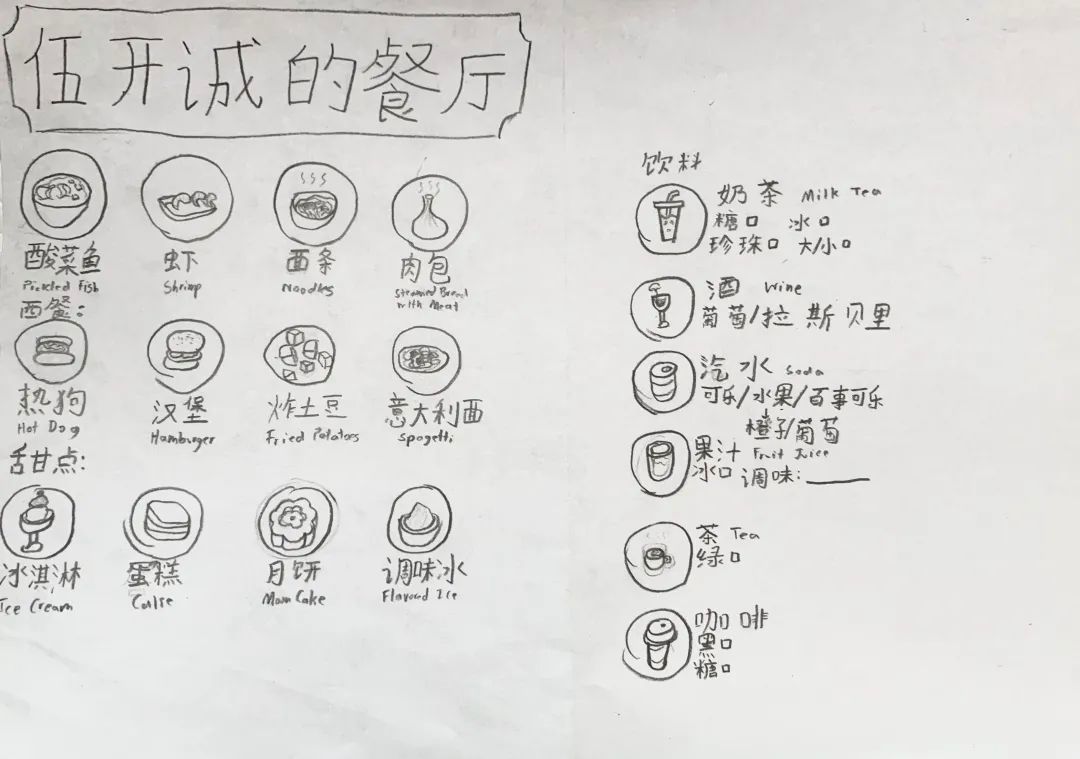 伍开诚的餐厅
酸菜鱼 虾 面条 肉包
Pickled Fish Shrimp Noodles Steamed Bread with Meat
西餐:
热狗 汉堡 炸土豆 意大利面
Hot Dog Hamburger Fried Potatoes Spagetti
甜点:
冰淇淋 蛋糕 月饼 调味冰
Ice Cream Moon Cake Flavored Ice
饮料
奶茶 Milk Tea
糖口 冰口
珍珠口 大/小口
酒 Wine
葡萄/拉斯贝里
汽水 Soda
可乐/水果/百事可乐
橙子/葡萄
果汁 Fruit Juice
冰口 调味:____
茶 Tea
绿口
咖啡
黑口
糖口